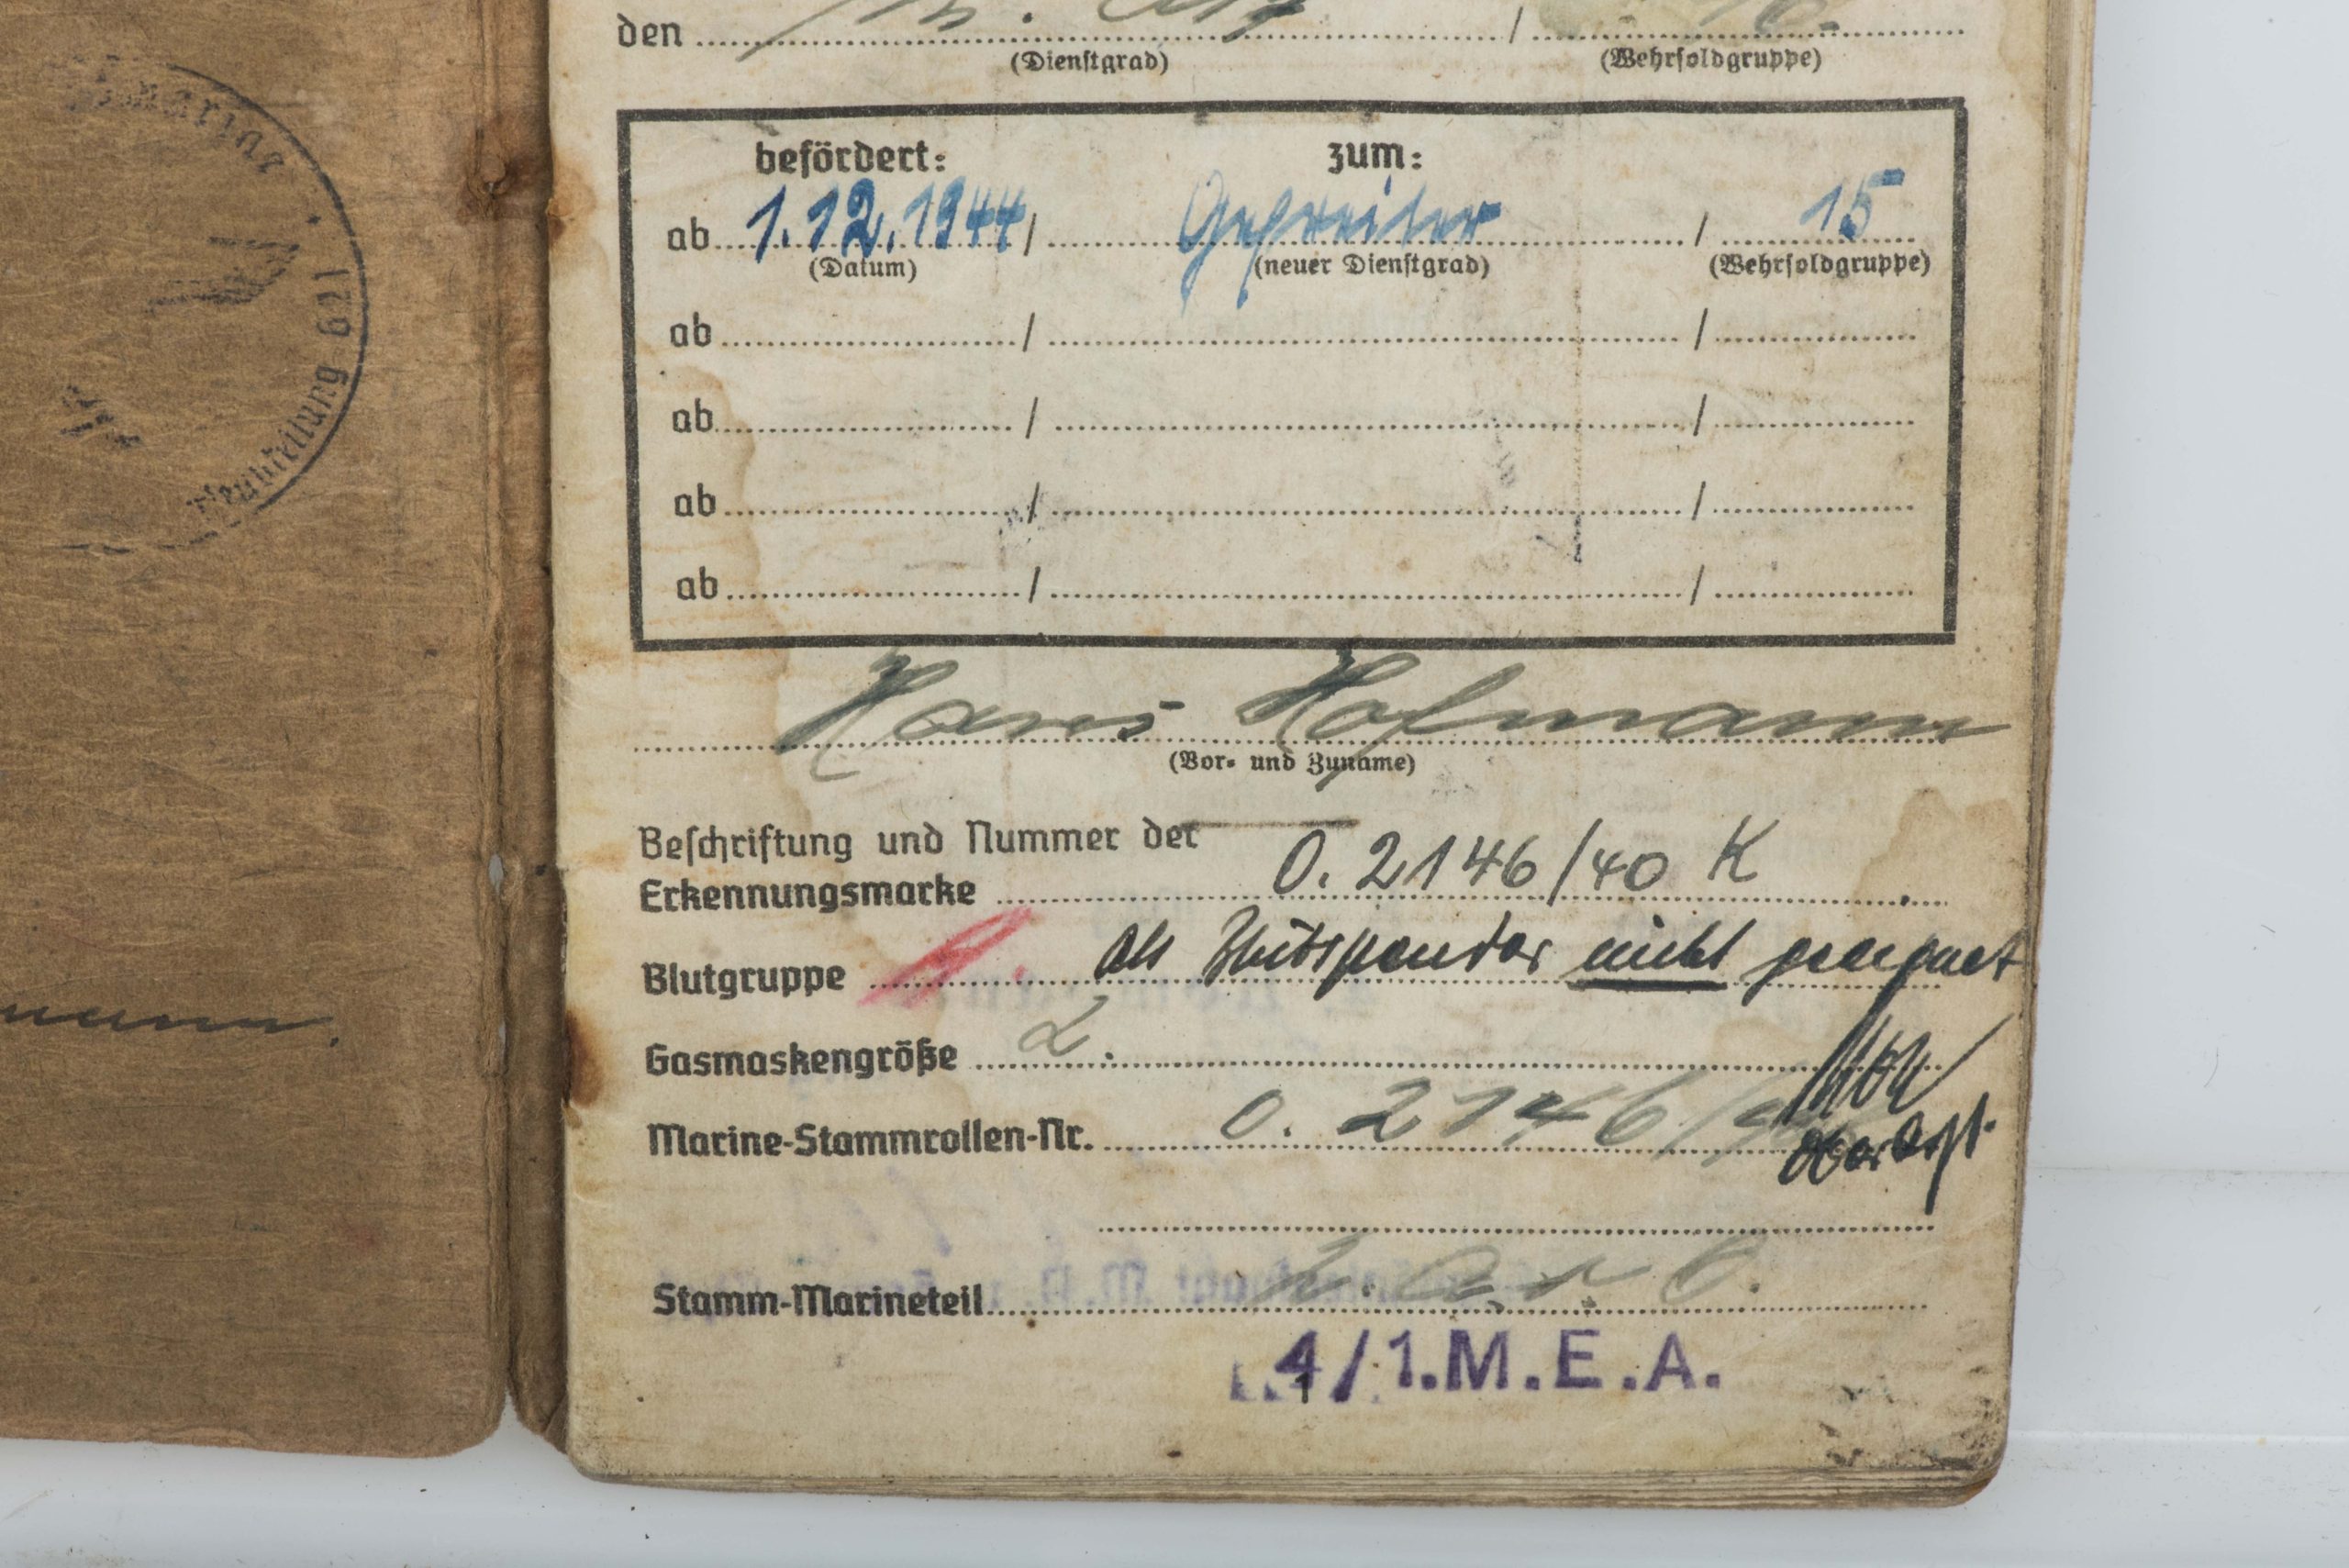 Marine
Abteilung 621
den / 16.
(Dienstgrad) (Wehrsoldgruppe)
befördert: zum:
ab 1.12.1944 / Gefreiter / 15
(Datum) (neuer Dienstgrad) (Wehrsoldgruppe)
ab / /
ab / /
ab / /
ab / /
Hans Hofmann
(Vor- und Zuname)
Beschriftung und Nummer der
Erkennungsmarke O. 2146/40 K
Blutgruppe A. als Blutspender nicht geeignet
Gasmaskengröße 2.
Marine-Stammrollen-Nr. O. 2146/40
Stamm-Marineteil
4/1.M.E.A.